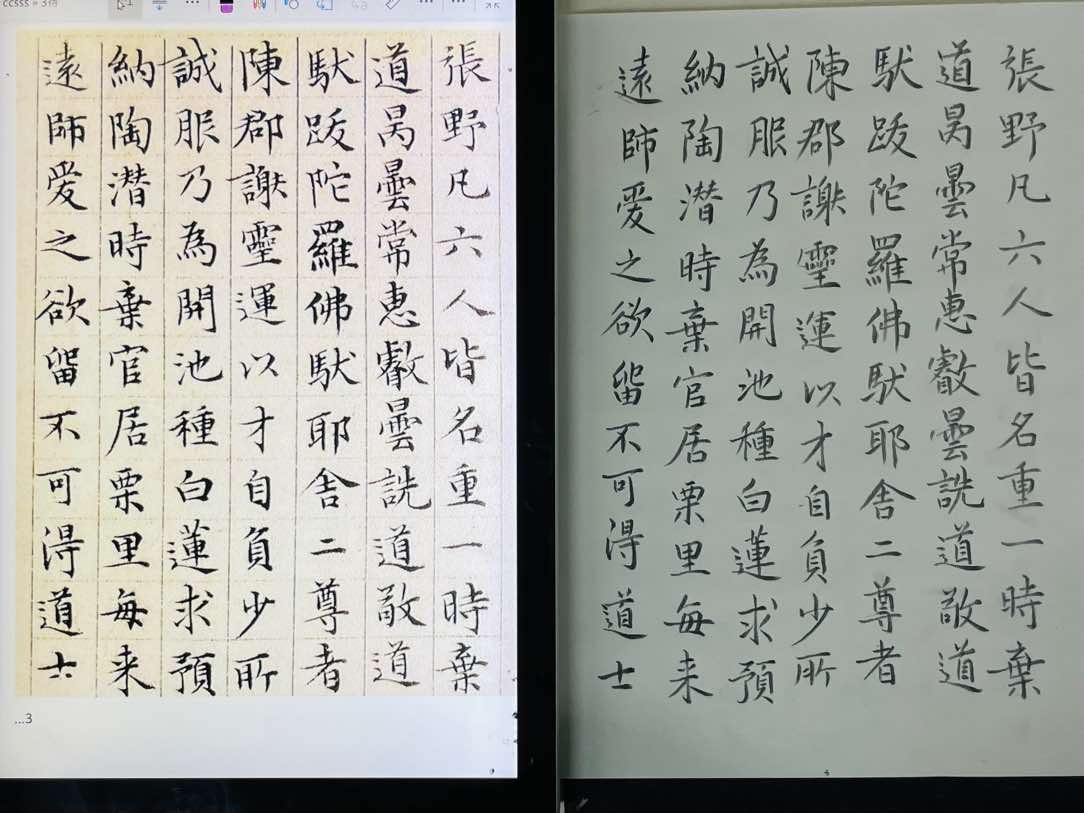 ccsss » 3倍
張野凡六人皆名重一時棄
道昺曇常惠叡曇詵道敬道
馱跋陀羅佛馱耶舍二尊者
陳郡謝靈運以才自負少所
誠服乃為開池種白蓮求預
納陶潛時棄官居栗里每来
遠師愛之欲留不可得道士
...3
張野凡六人皆名重一時棄
道昺曇常惠叡曇詵道敬道
馱跋陀羅佛馱耶舍二尊者
陳郡謝靈運以才自負少所
誠服乃為開池種白蓮求預
納陶潛時棄官居栗里每来
遠師愛之欲留不可得道士